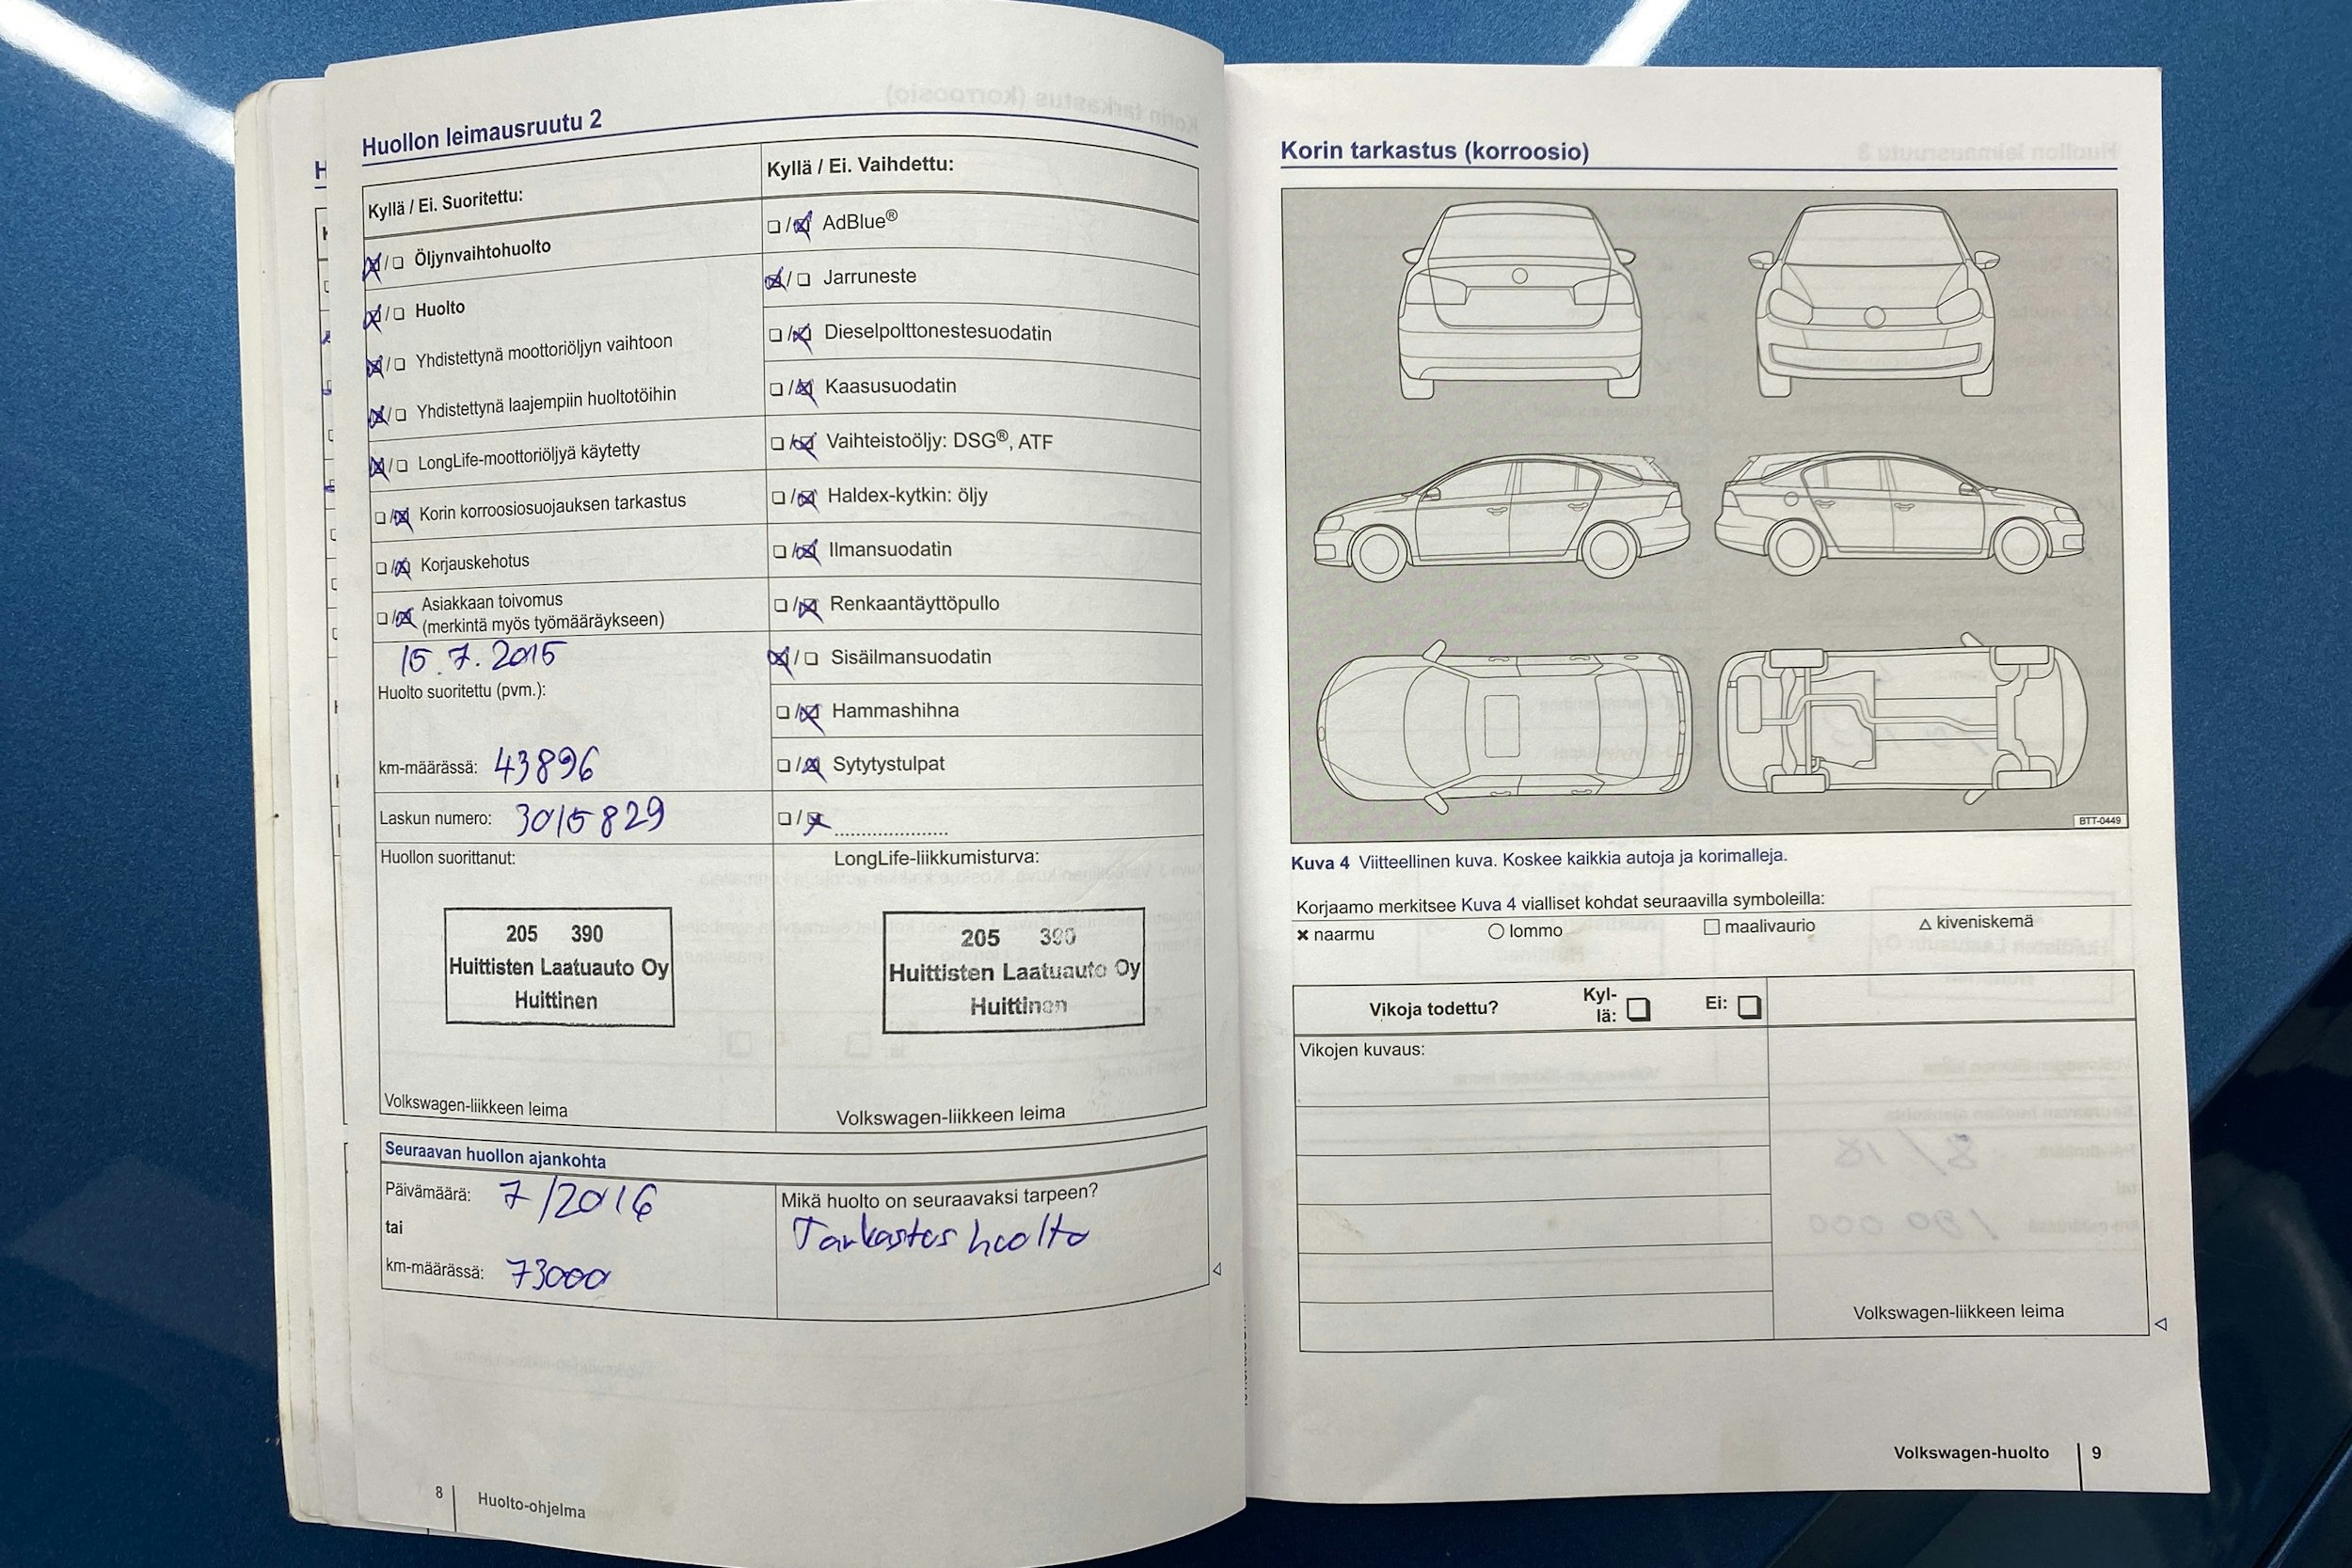 Huollon leimausruutu 2
Kyllä / Ei. Suoritettu:
Öljynvaihtohuolto
Huolto
Yhdistettynä moottoriöljyn vaihtoon
Yhdistettynä laajempiin huoltotöihin
LongLife-moottoriöljyä käytetty
Korin korroosiosuojauksen tarkastus
Korjauskehotus
Asiakkaan toivomus
(merkintä myös työmääräykseen)
15.7.2015
Huolto suoritettu (pvm.):
km-määrässä: 43896
Laskun numero: 3015829
Kyllä / Ei. Vaihdettu:
AdBlue®
Jarruneste
Dieselpolttonestesuodatin
Kaasusuodatin
Vaihteistoöljy: DSG®, ATF
Haldex-kytkin: öljy
Ilmansuodatin
Renkaantäyttöpullo
Sisäilmansuodatin
Hammashihna
Sytytystulpat
Huollon suorittanut:
205 390
Huittisten Laatuauto Oy
Huittinen
Volkswagen-liikkeen leima
LongLife-liikkumisturva:
205 390
Huittisten Laatuauto Oy
Huittinen
Volkswagen-liikkeen leima
Seuraavan huollon ajankohta
Päivämäärä: 7/2016
tai
km-määrässä: 73000
Mikä huolto on seuraavaksi tarpeen?
Tarkastus huolto
8 Huolto-ohjelma
Korin tarkastus (korroosio)
BTT-0449
Kuva 4 Viitteellinen kuva. Koskee kaikkia autoja ja korimalleja.
Korjaamo merkitsee Kuva 4 vialliset kohdat seuraavilla symboleilla:
naarmu lommo maalivaurio kiveniskemä
Vikoja todettu? Kyl-
lä: Ei:
Vikojen kuvaus:
Volkswagen-liikkeen leima
Volkswagen-huolto 9